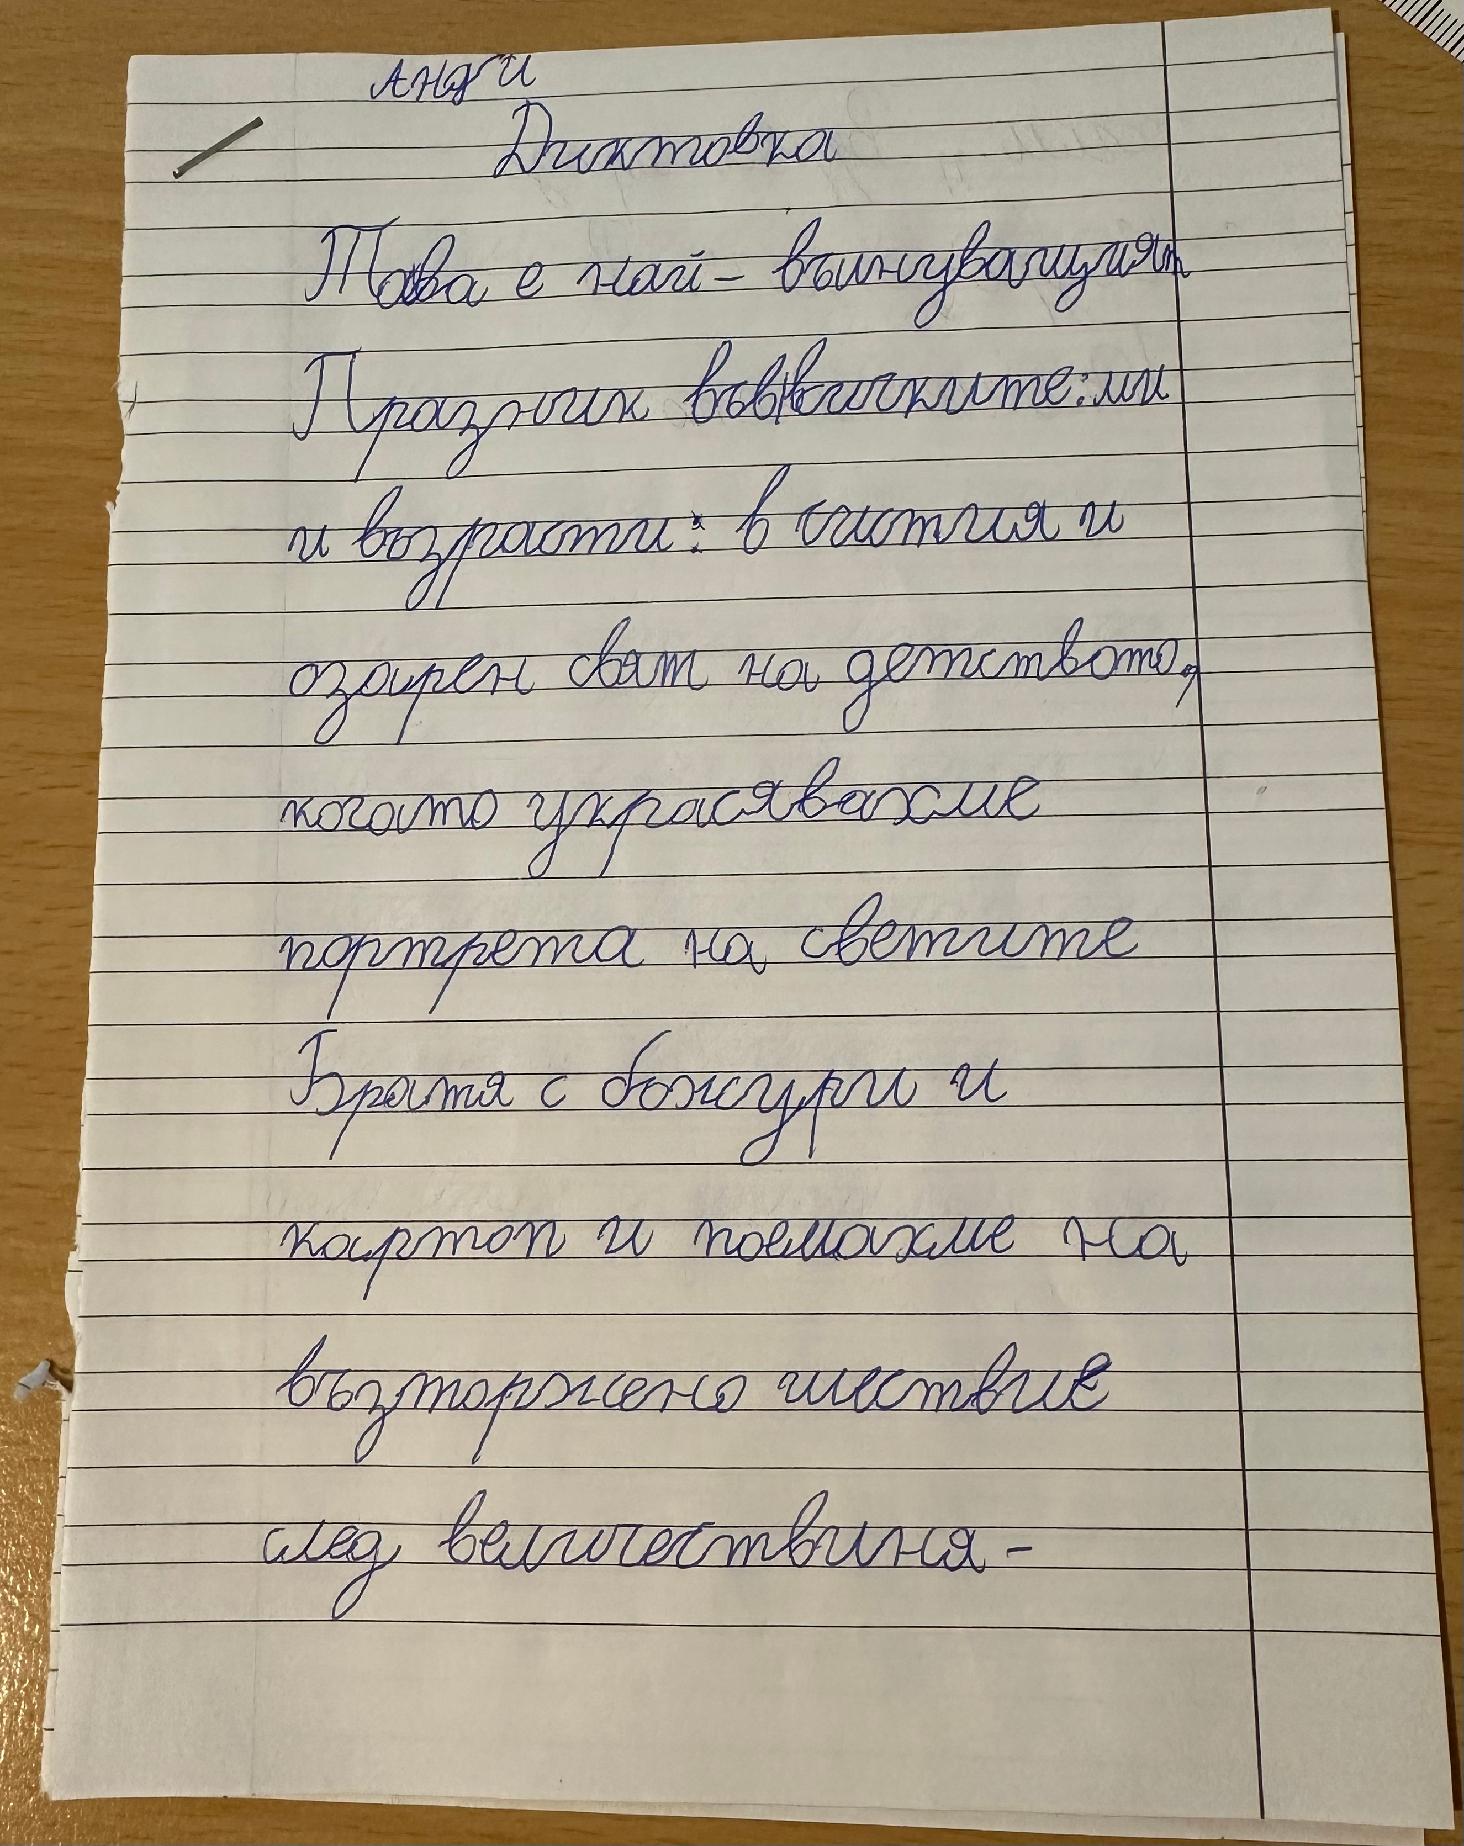 Анди
Диктовка
Това е най- вълнуващият
Празник във всичките: ми
и възрасти: в чистия и
озарен свят на детството,
когато украсявахме
портрета на светите
Братя с божури и
картоп и поемахме на
възторжено шествие
след величествиня-